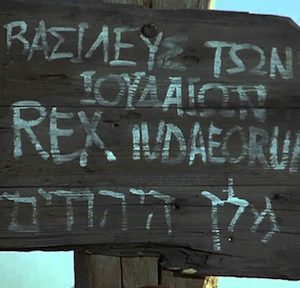 ΒΑΣΙΛΕΥΣ ΤΩΝ
ΙΟΥΔΑΙΩΝ
REX IUDAEORUM
מלך היהודים